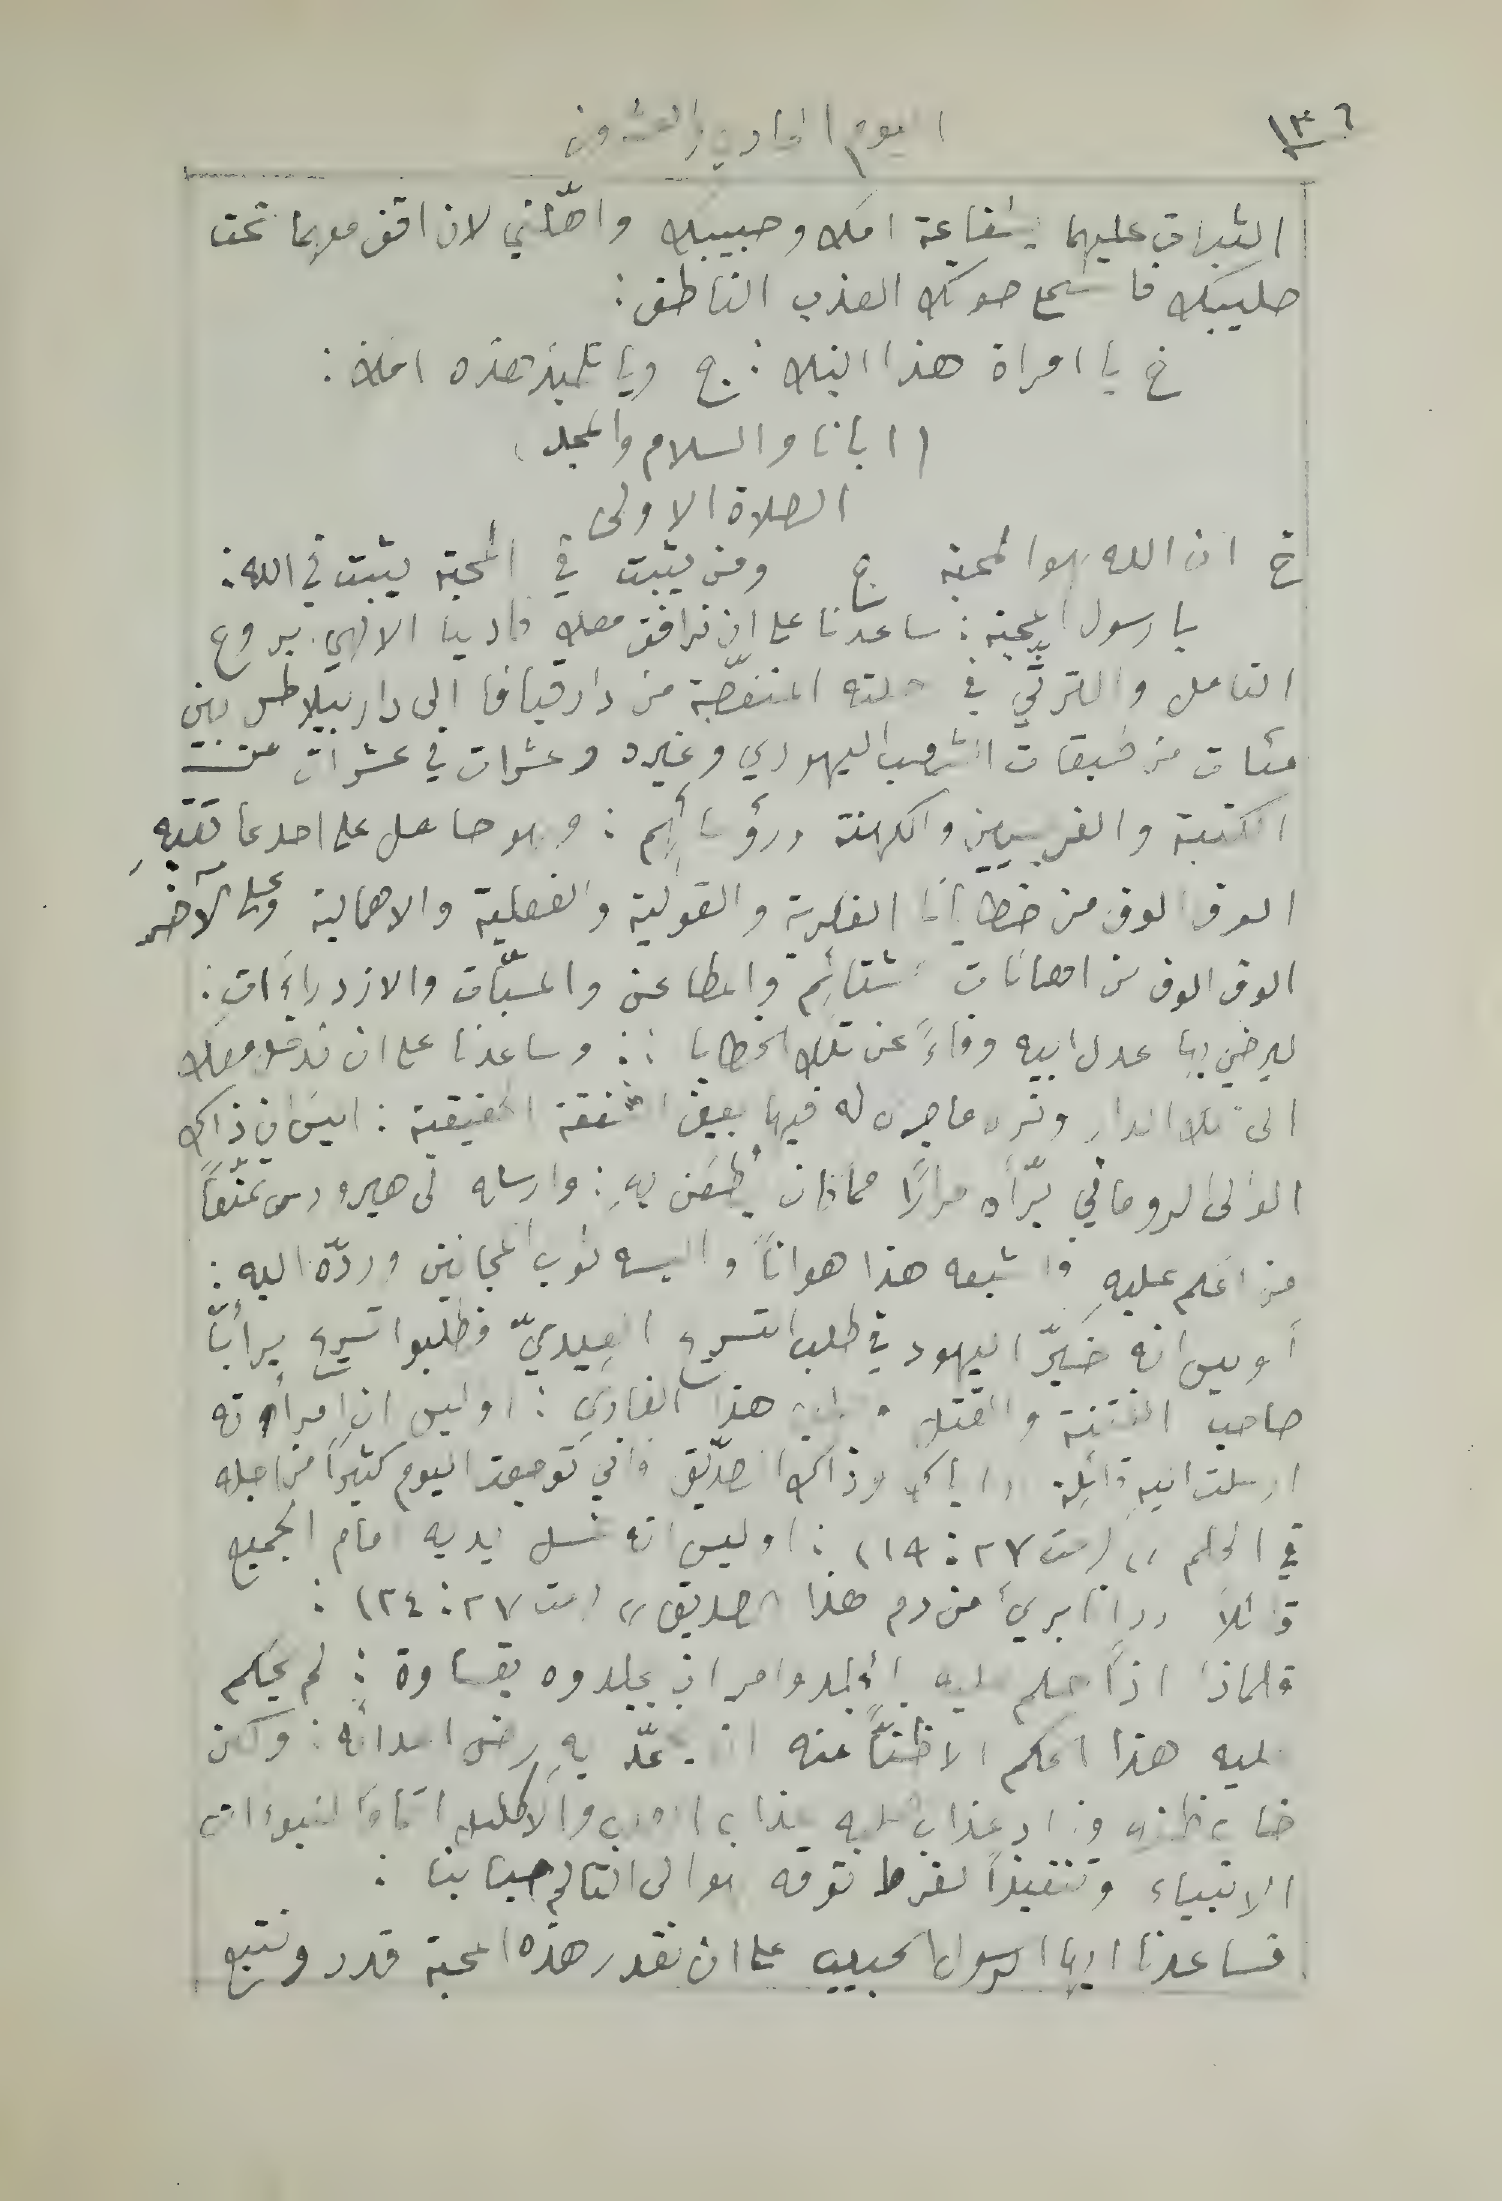 ١٣٦
اليوم الحادي والعشرون
الثبات عليهما بشفاعة امك وحبيبك واهّلني لان اقف معهما تحت
صليبك فاسمع صوتك العذب الناطق :
خ يا امراة هذا ابنك : ج ويا تلميذ هذه امك :
( ابانا والسلام والمجد )
الصلاة الاولى
خ ان الله هو المحبة ج ومن يثبت في المحبة يثبت في الله :
يا رسول المحبة : ساعدنا على ان نرافق معك فادينا الالهي بروح
التامل والترقّي في المنغصّة من دار قيافا الى دار بيلاطس بين
مئات من طبقات الشعب اليهودي وغيره وعشرات في عشرات من
الكتبة والفريسيين والكهنة ورؤسائهم : وهو حامل على احد عاتقيهِ
الوف الوف من خطايانا الفكرية والقولية والفعلية والاهمالية وعلى الآخر
الوف الوف من اهانات شتائم والمطاعن والمسبّات والازدراءات :
ليرضي بها عدل ابيه وفاءً عن تلك الخطايا : وساعدنا على ان ندخل معك
الى تلك الدار ونرى ما جرى له فيها بعين الشفقة الحقيقية : اليس ان ذاك
الوالي الروماني برّأه مرارًا مما كان يُطعَن بهِ : وارسله الى هيرودس تمنّعاً
من الحكم عليهِ واشبعه هذا هواناً والبسه ثوب المجانين وردّه اليه :
أوليس انه خيّر اليهود في طلب التسريح العيديّ فطلبوا تسريح برأبّا
صاحب الفتنة والقتل هذا الفادي : اوليس ان امرأته
ارسلت اليهِ قائلة « اياك وذاك الصدّيق فاني توجعت اليوم كثيراً من اجله
في الحلم » (مت ٢٧ : ١٩) : اوليس انه غسل يديه امام الجميع
قائلاً « انا بريء من دم هذا الصديق » (مت ٢٧ : ٢٤) :
فلماذا اذاً حكم عليه بالجلد وامر ان يجلدوه بقساوة : لم يحكم
عليه هذا الحكم الا ظنّاً منه انه بهِ رضى اعدائه : ولكن
خاب ظنه وزاد عذاب والاكليل اتماماً لنبوءات
الانبياء وتنفيذاً لفرط توقه هو الى التالم حبا بنا :
فساعدنا ايها الرسول الحبيب على ان نقدر هذه المحبة قدر ونتبع